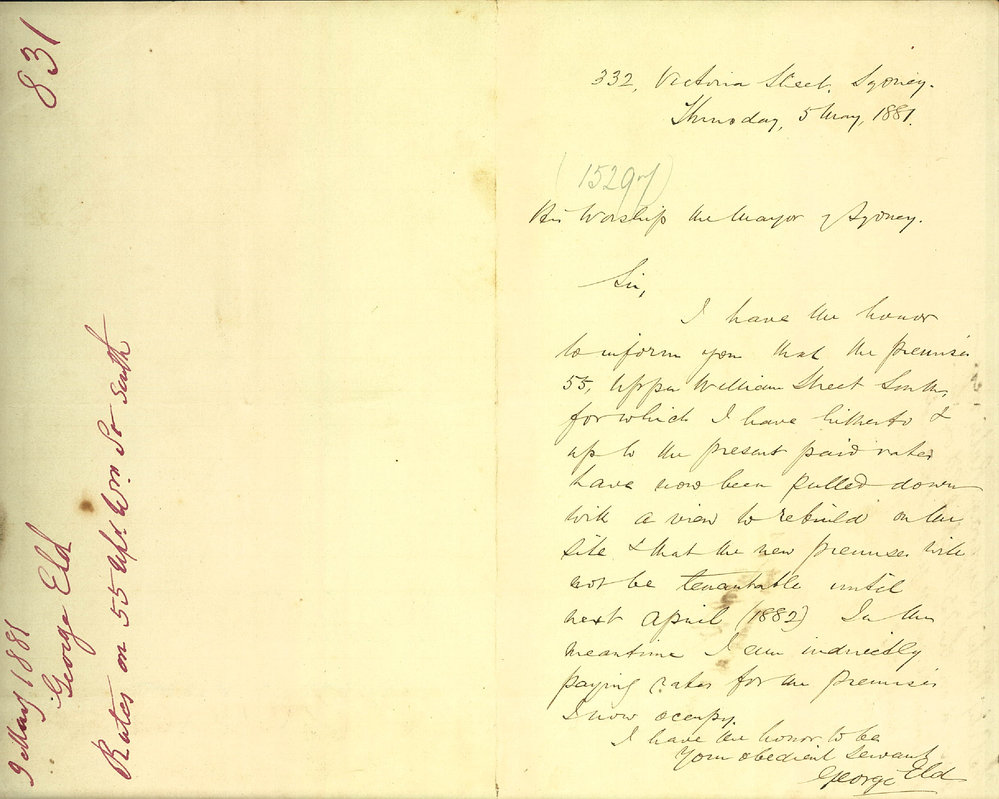 831
9 May 1881
George Eld
Rates on 55 Upr Wm St South
332, Victoria Street, Sydney.
Thursday, 5 May, 1881.
(1529
His Worship the Mayor of Sydney.
Sir,
I have the honor
to inform you that the premises
55, Upper William Street South,
for which I have hitherto &
up to the present paid rates
have now been pulled down
with a view to rebuild on the
site & that the new premises will
not be tenantable until
next April (1882) In the
meantime I am indirectly
paying rates for the premises
I now occupy.
I have the honor to be
Your obedient Servant
George Eld